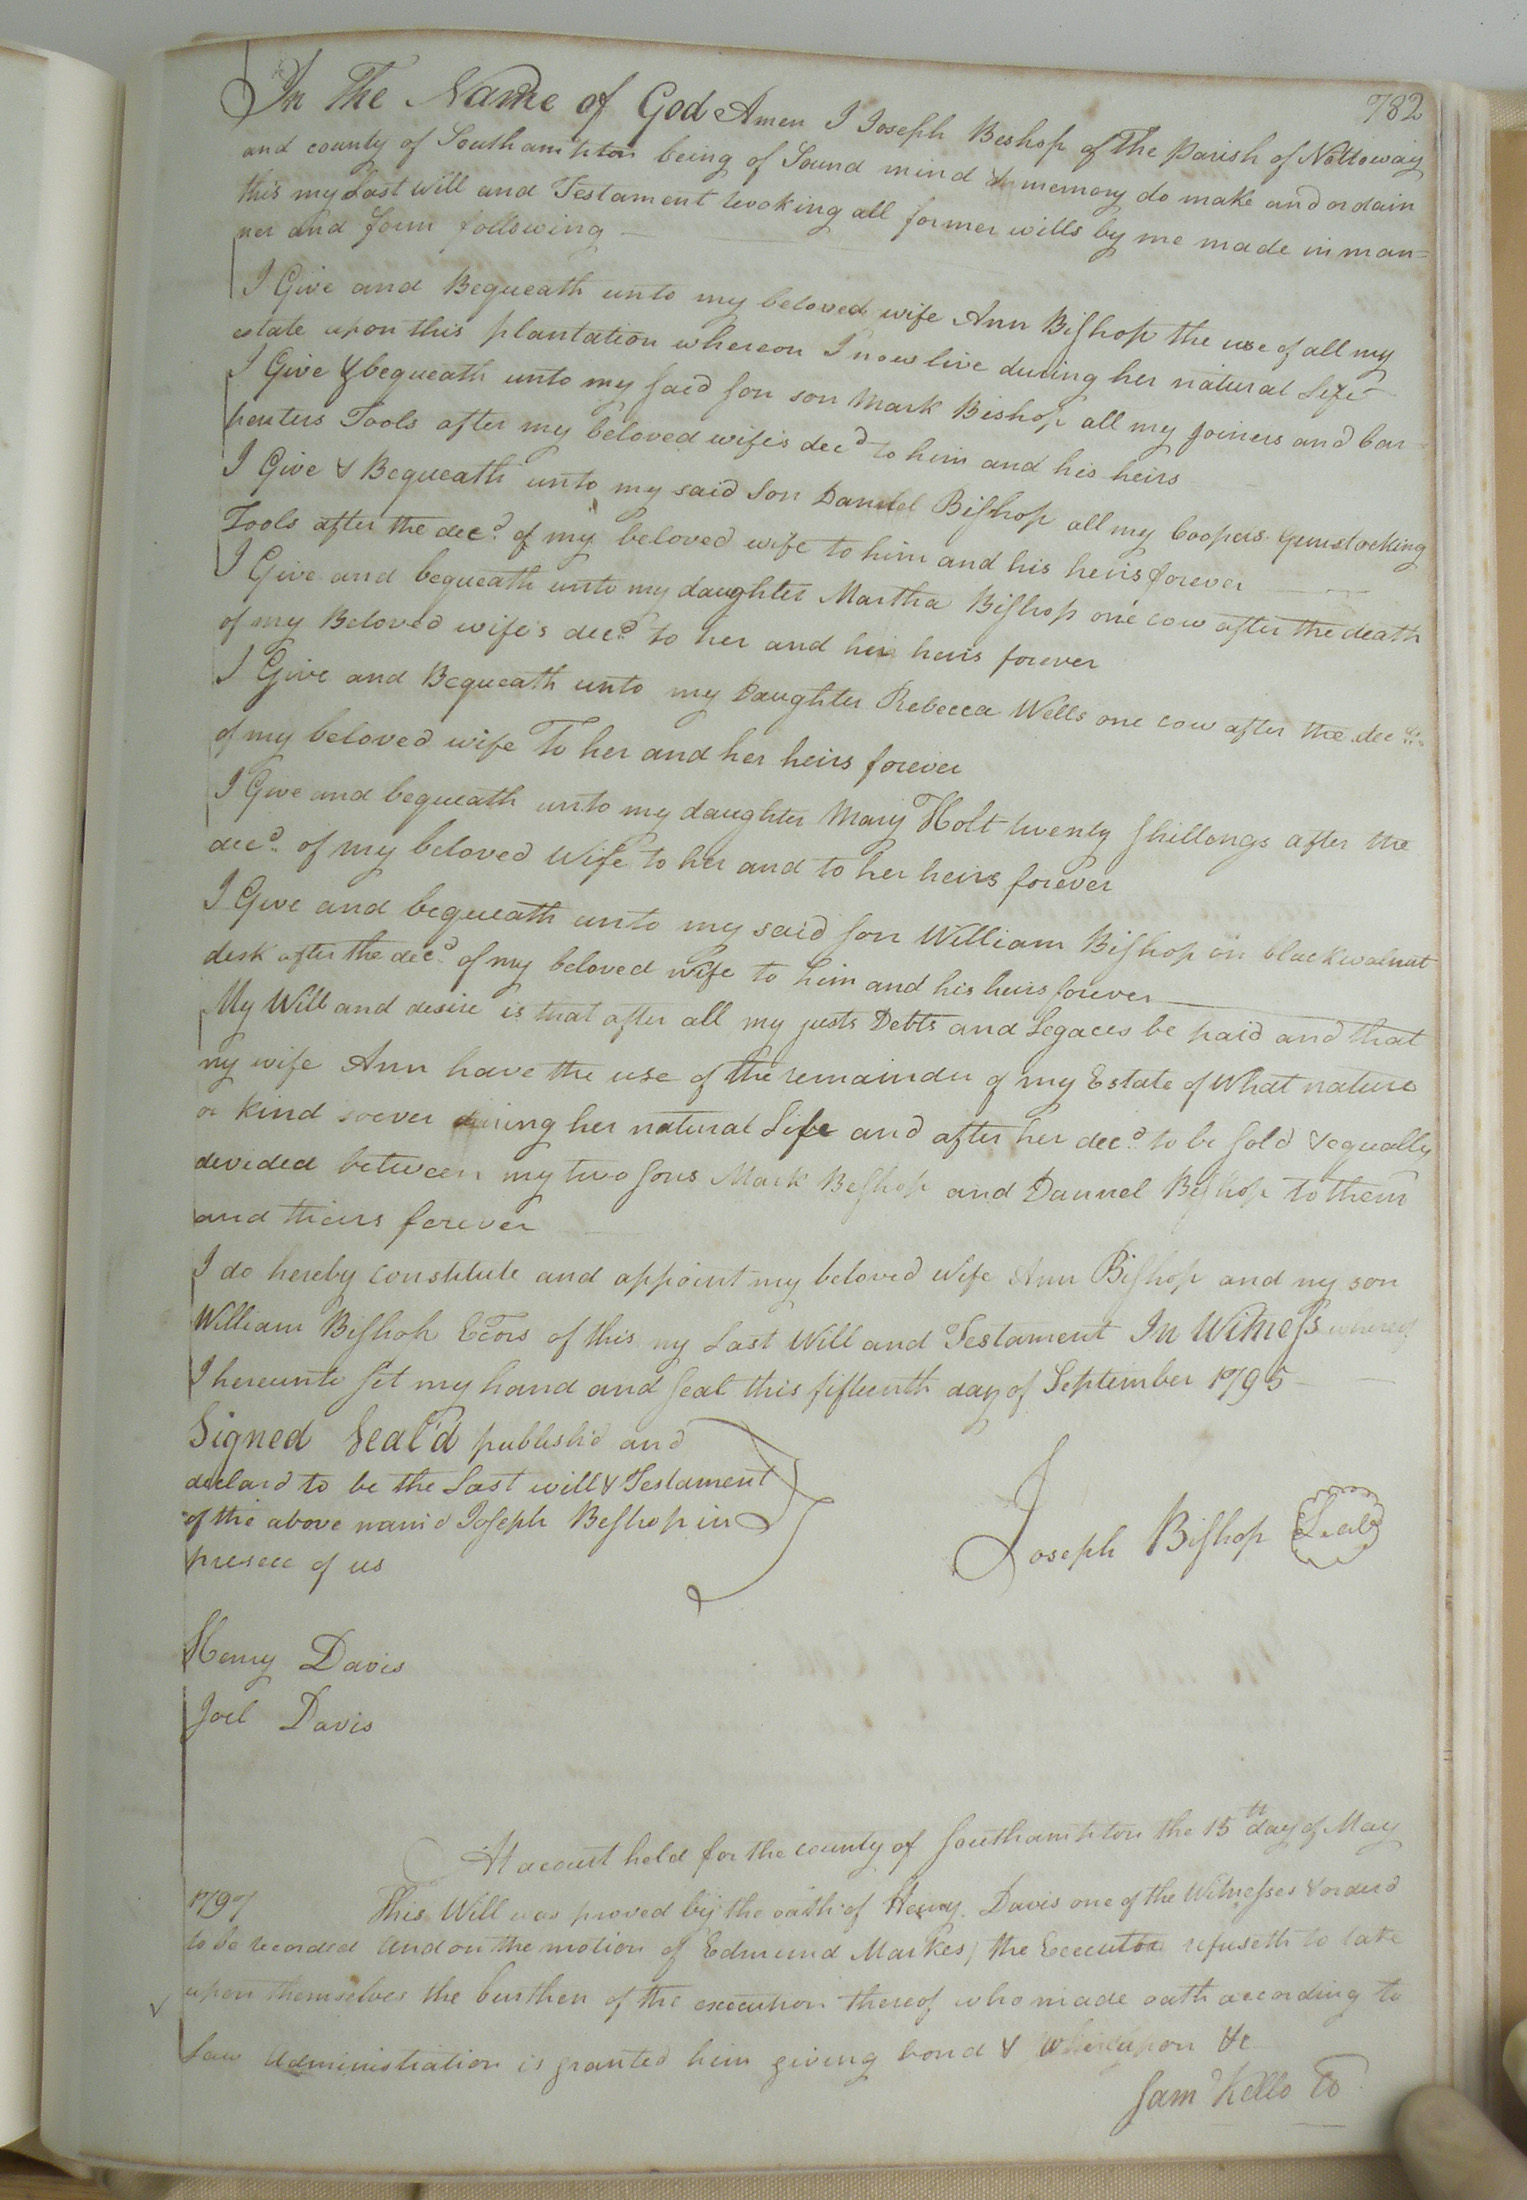 782
In The Name of God Amen I Joseph Beshop of The Parish of Nottoway
and county of Southamton being of Sound mind & memory do make and ordain
this my Last will and Testament revoking all former wills by me made in man=
ner and form following
I Give and Bequeath unto my beloved wife Ann Bishop the use of all my
estate upon this plantation whereon I now live during her natural Life
I Give & bequeath unto my said son son Mark Bishop all my Joiners and Car
penters Tools after my beloved wife's decd to him and his heirs
I Give & Bequeath unto my said Son Daniel Bishop all my Coopers Gunstocking
Tools after the decd. of my beloved wife to him and his heirs forever
I Give and bequeath unto my daughter Martha Bishop one cow after the death
of my Beloved wife's decd. to her and her heirs forever
I Give and Bequeath unto my Daughter Rebecca Wells one cow after the decd.
of my beloved wife To her and her heirs forever
I Give and bequeath unto my daughter Mary Holt twenty shillongs after the
decd. of my beloved Wife to her and to her heirs forever
I Give and bequeath unto my said son William Bishop on blackwalnut
desk after the decd. of my beloved wife to him and his heirs forever
My Will and desire is that after all my justs Debts and Legaces be paid and that
my wife Ann have the use of the remainder of my Estate of What nature
or kind soever during her natural Life and after her decd. to be sold & equally
devided between my two sons Mark Beshop and Dannel Beshop to them
and theirs forever
I do hereby constitute and appoint my beloved wife Ann Bishop and my son
William Bishop Ecors of this my Last Will and Testament In Witness whereof
I hereunto set my hand and seal this fifteenth day of September 1795
Signed Seal'd publish'd and
declard to be the Last will & Testament
of the above nam'd Joseph Beshop in
presece of us
Joseph Bishop Seal
Henry Davis
Joel Davis
At a court held for the county of Southamton the 15th day of May
1797 This Will was proved by the oath of Henry Davis one of the Witnesses & orderd
to be recorded And on the motion of Edmund Markes, the Executor refuseth to take
upon themselves the burthen of the execution thereof who made oath according to
Law Administration is granted him giving bond & Whereupon &c
Sam Kello CC